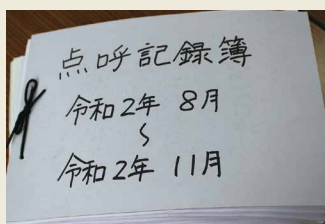 点呼記録簿
令和2年 8月
〜
令和2年 11月